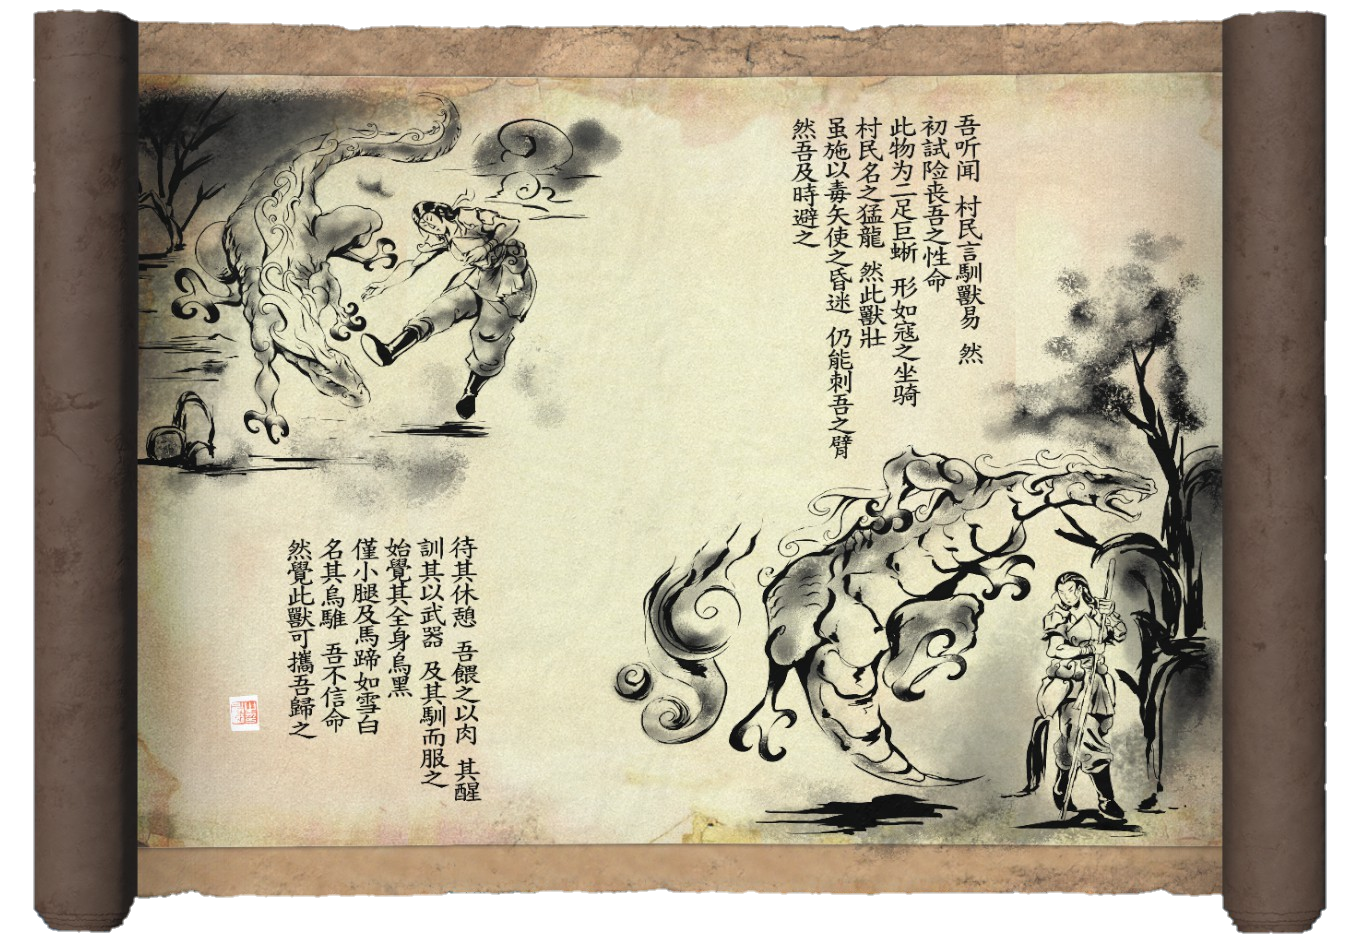 吾听闻 村民言馴獸易 然
初試险丧吾之性命
此物为二足巨蜥 形如寇之坐骑
村民名之猛龍 然此獸壯
虽施以毒矢使之昏迷 仍能刺吾之臂
然吾及時避之
待其休憩 吾餵之以肉 其醒
訓其以武器 及其馴而服之
始覺其全身烏黑
僅小腿及馬蹄如雪白
名其烏騅 吾不信命
然覺此獸可攜吾歸之